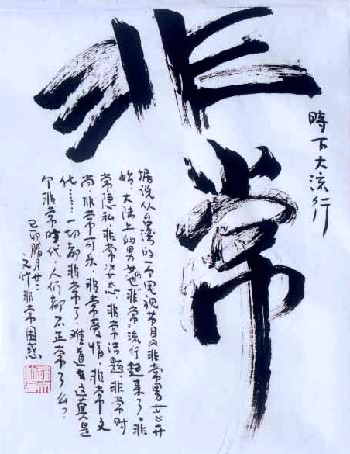 非常
時下大流行
据说从台湾的一个电视节目《非常男女》开
始，大陆上的男女也非常流行起来了。非
常隐私、非常心态、非常话题、非常时
尚、非常可乐、非常爱情、非常文
化……一切都非常了，难道当这真是
个非常时代，人们都不正常了么？
己卯腊月廿三
非常困惑